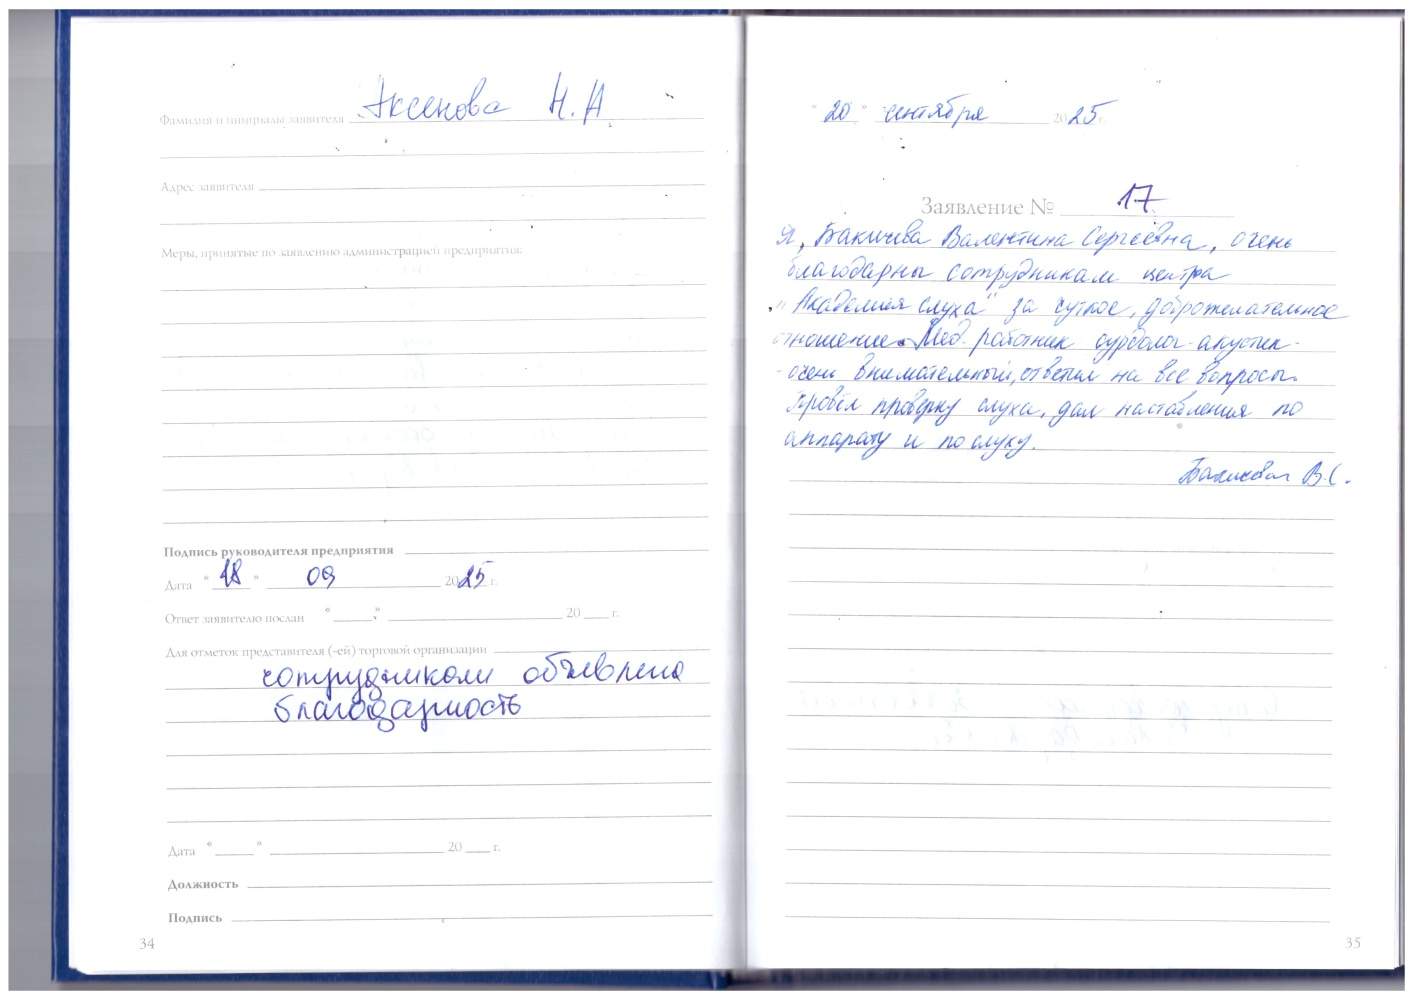 Фамилия и инициалы заявителя Аксенова Н.А
Адрес заявителя
Меры, принятые по заявлению администрацией предприятия:
Подпись руководителя предприятия
Дата "18" 09 2025 г.
Ответ заявителю послан "___" 20 ___ г.
Для отметок представителя (-ей) торговой организации
сотрудникам объявлена
благодарность
Дата "___" 20 ___ г.
Должность
Подпись
34
"20" сентября 2025 г.
Заявление № 17
Я, Валентина Сергеевна, очень
благодарны сотрудникам центра
"Академия слуха" за чуткое, доброжелательное
отношение. Мед. работник сурдолог-акустик-
-очень внимательный, ответил на все вопросы.
Провёл проверку слуха, дал наставления по
аппарату и по слуху.
В.С.
35